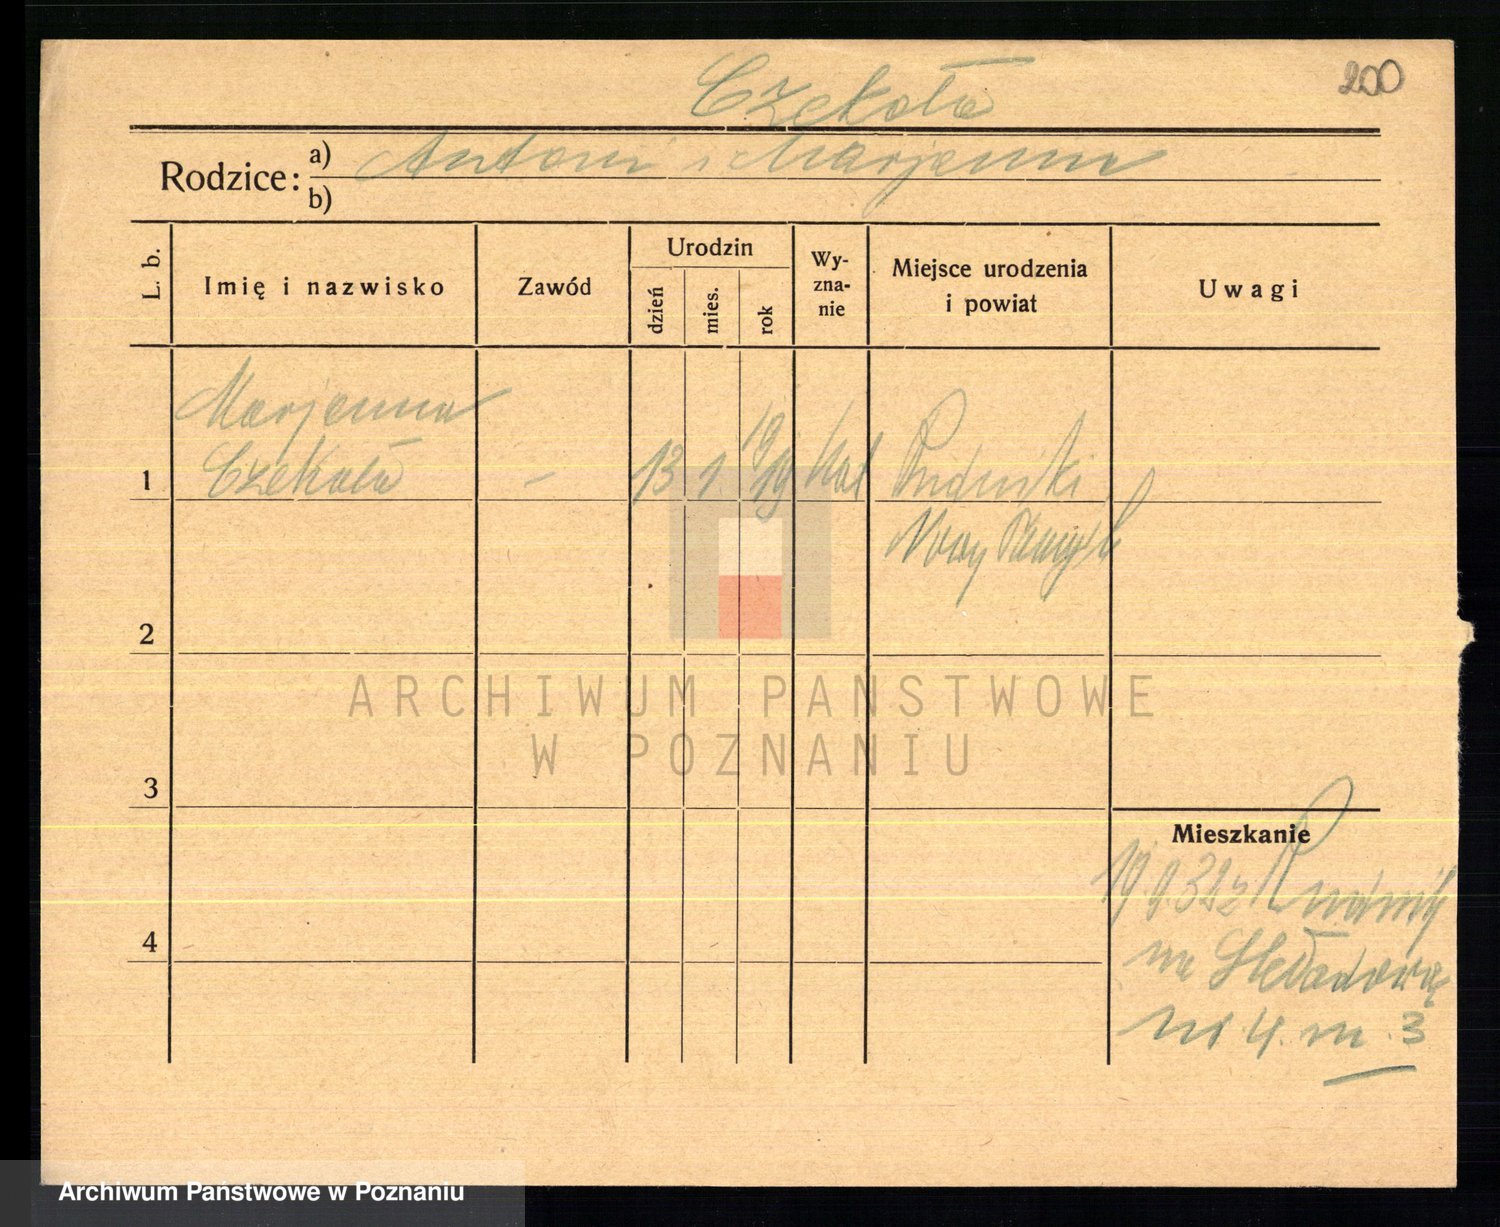 200
Czekała
Rodzice: a) Antoni i Marjanna
b)
L. b.
Imię i nazwisko
Zawód
Urodzin
dzień
mies.
rok
Wy-
zna-
nie
Miejsce urodzenia
i powiat
Uwagi
Marjanna
Czekała
1
-
13 1 19
19
Kat
Rudniki
Nowy Tomyśl
2
3
4
Mieszkanie
19.9.32 z
na Składową
nr 4. m. 3
ARCHIWUM PANSTWOWE
W POZNANIU
Archiwum Państwowe w Poznaniu